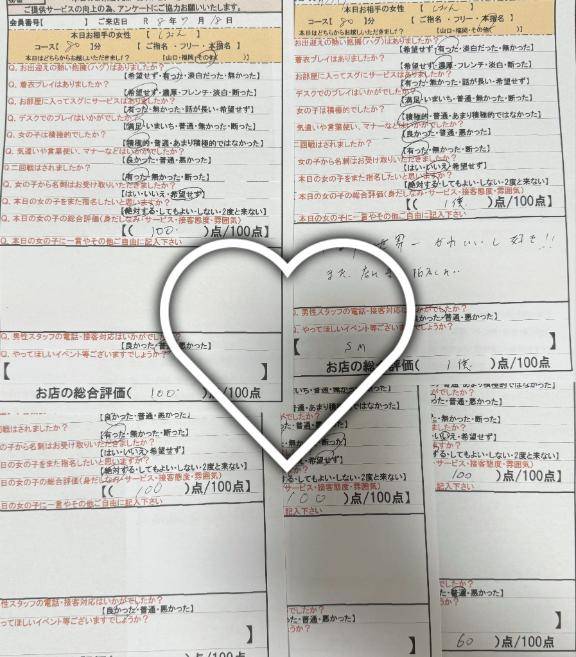 ご提供サービスの向上の為、アンケートにご協力お願いいたします。
会員番号[ ] ご来店日 R 8年 7月 18日
本日お相手の女性 【
コース【 80 】分 【 ご指名・フリー・本指名 】
本日はどちらからお越しいただきました？ 【山口・福岡・その他( )】
Q. お出迎えの熱い抱擁(ハグ)はありましたか？
【希望せず・有った・淡白だった・無かった】
Q. 着衣プレイはありましたか？
【希望せず・濃厚・フレンチ・淡白・無かった】
Q. お部屋に入ってスグにサービスはありましたか？
【有った・無かった・話が長い・希望せず】
Q. デスクでのプレイはいかがでしたか？
【満足・いまいち・普通・無かった・断った】
Q. 女の子は積極的でしたか？
【積極的・普通・あまり積極的ではなかった】
Q. 気遣いや言葉使い、マナーなどはいかがでしたか？
【良かった・普通・悪かった】
Q. 二回戦はされましたか？
【有った・無かった・断った】
Q. 女の子から名刺はお受け取りいただきましたか？
【はい・いいえ・希望せず】
Q. 本日の女の子をまた指名したいと思いますか？
【絶対する・してもよい・しない・2度と来ない】
Q. 本日の女の子の総合評価(身だしなみ・サービス・接客態度・雰囲気)
【( 100 )点/100点】
Q. 本日の女の子に一言やその他ご自由に記入下さい
Q. 男性スタッフの電話・接客対応はいかがでしたか？
【良かった・普通・悪かった】
Q. やってほしいイベント等ございますでしょうか？
【
お店の総合評価( 100 )点/100点
本日お相手の女性 【
コース【 80 】分 【 ご指名・フリー・本指名 】
本日はどちらからお越しいただきました？ 【山口・福岡・その他( )】
お出迎えの熱い抱擁(ハグ)はありましたか？
【希望せず・有った・淡白だった・無かった】
着衣プレイはありましたか？
【希望せず・濃厚・フレンチ・淡白・無かった】
お部屋に入ってスグにサービスはありましたか？
【有った・無かった・話が長い・希望せず】
デスクでのプレイはいかがでしたか？
【満足・いまいち・普通・無かった・断った】
女の子は積極的でしたか？
【積極的・普通・あまり積極的ではなかった】
気遣いや言葉使い、マナーなどはいかがでしたか？
【良かった・普通・悪かった】
二回戦はされましたか？
【有った・無かった・断った】
女の子から名刺はお受け取りいただきましたか？
【はい・いいえ・希望せず】
本日の女の子をまた指名したいと思いますか？
【絶対する・してもよい・しない・2度と来ない】
本日の女の子の総合評価(身だしなみ・サービス・接客態度・雰囲気)
【( 1億 )点/100点】
本日の女の子に一言やその他ご自由に記入下さい
世界一 かわいいし 好き!!
また
Q. 男性スタッフの電話・接客対応は
・普通・悪かった】
Q. やってほしいイベント等ございますでしょうか？
【 SM 】
お店の総合評価( 1億 )点/100点
【良かった・普通・悪かった】
戦はされましたか？
【有った・無かった・断った】
の子から名刺はお受け取りいただきましたか？
【はい・いいえ・希望せず】
日の女の子をまた指名したいと思いますか？
【絶対する・してもよい・しない・2度と来ない】
日の女の子の総合評価(身だしなみ・サービス・接客態度・雰囲気)
【( 100 )点/100点】
日の女の子に一言やその他ご自由に記入下さい
性スタッフの電話・接客対応はいかがでしたか？
【良かった・普通・悪かった】
ってほしいイベント等ございますでしょうか？
】
いち・普通・無かった・断った】
・普通・あまり積極的ではなかった】
た・普通・悪かった】
・無かった・断った】
いえ・希望せず】
する・してもよい・しない・2度と来ない】
サービス・接客態度・雰囲気)
100 )点/100点】
記入下さい
でしたか？
った・普通・悪かった】
うか？
】
あまり積極的ではなかった】
た・普通・悪かった】
・無かった・断った】
ましたか？
いいえ・希望せず】
する・してもよい・しない・2度と来ない】
・サービス・接客態度・雰囲気)
100 )点/100点】
記入下さい
でしたか？
った・普通・悪かった】
うか？
】
60 )点/100点